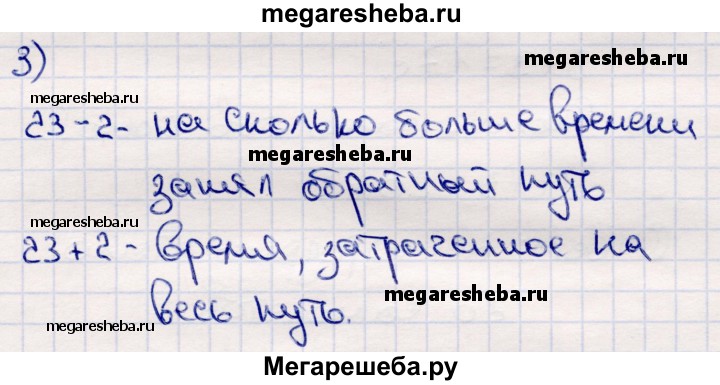 megaresheba.ru
3)
megaresheba.ru
megaresheba.ru
23-2- на сколько больше времени
megaresheba.ru
занял обратный путь
megaresheba.ru
23+2- время, затраченное на
megaresheba.ru
весь путь.
megaresheba.ru
Мегарешеба.ру